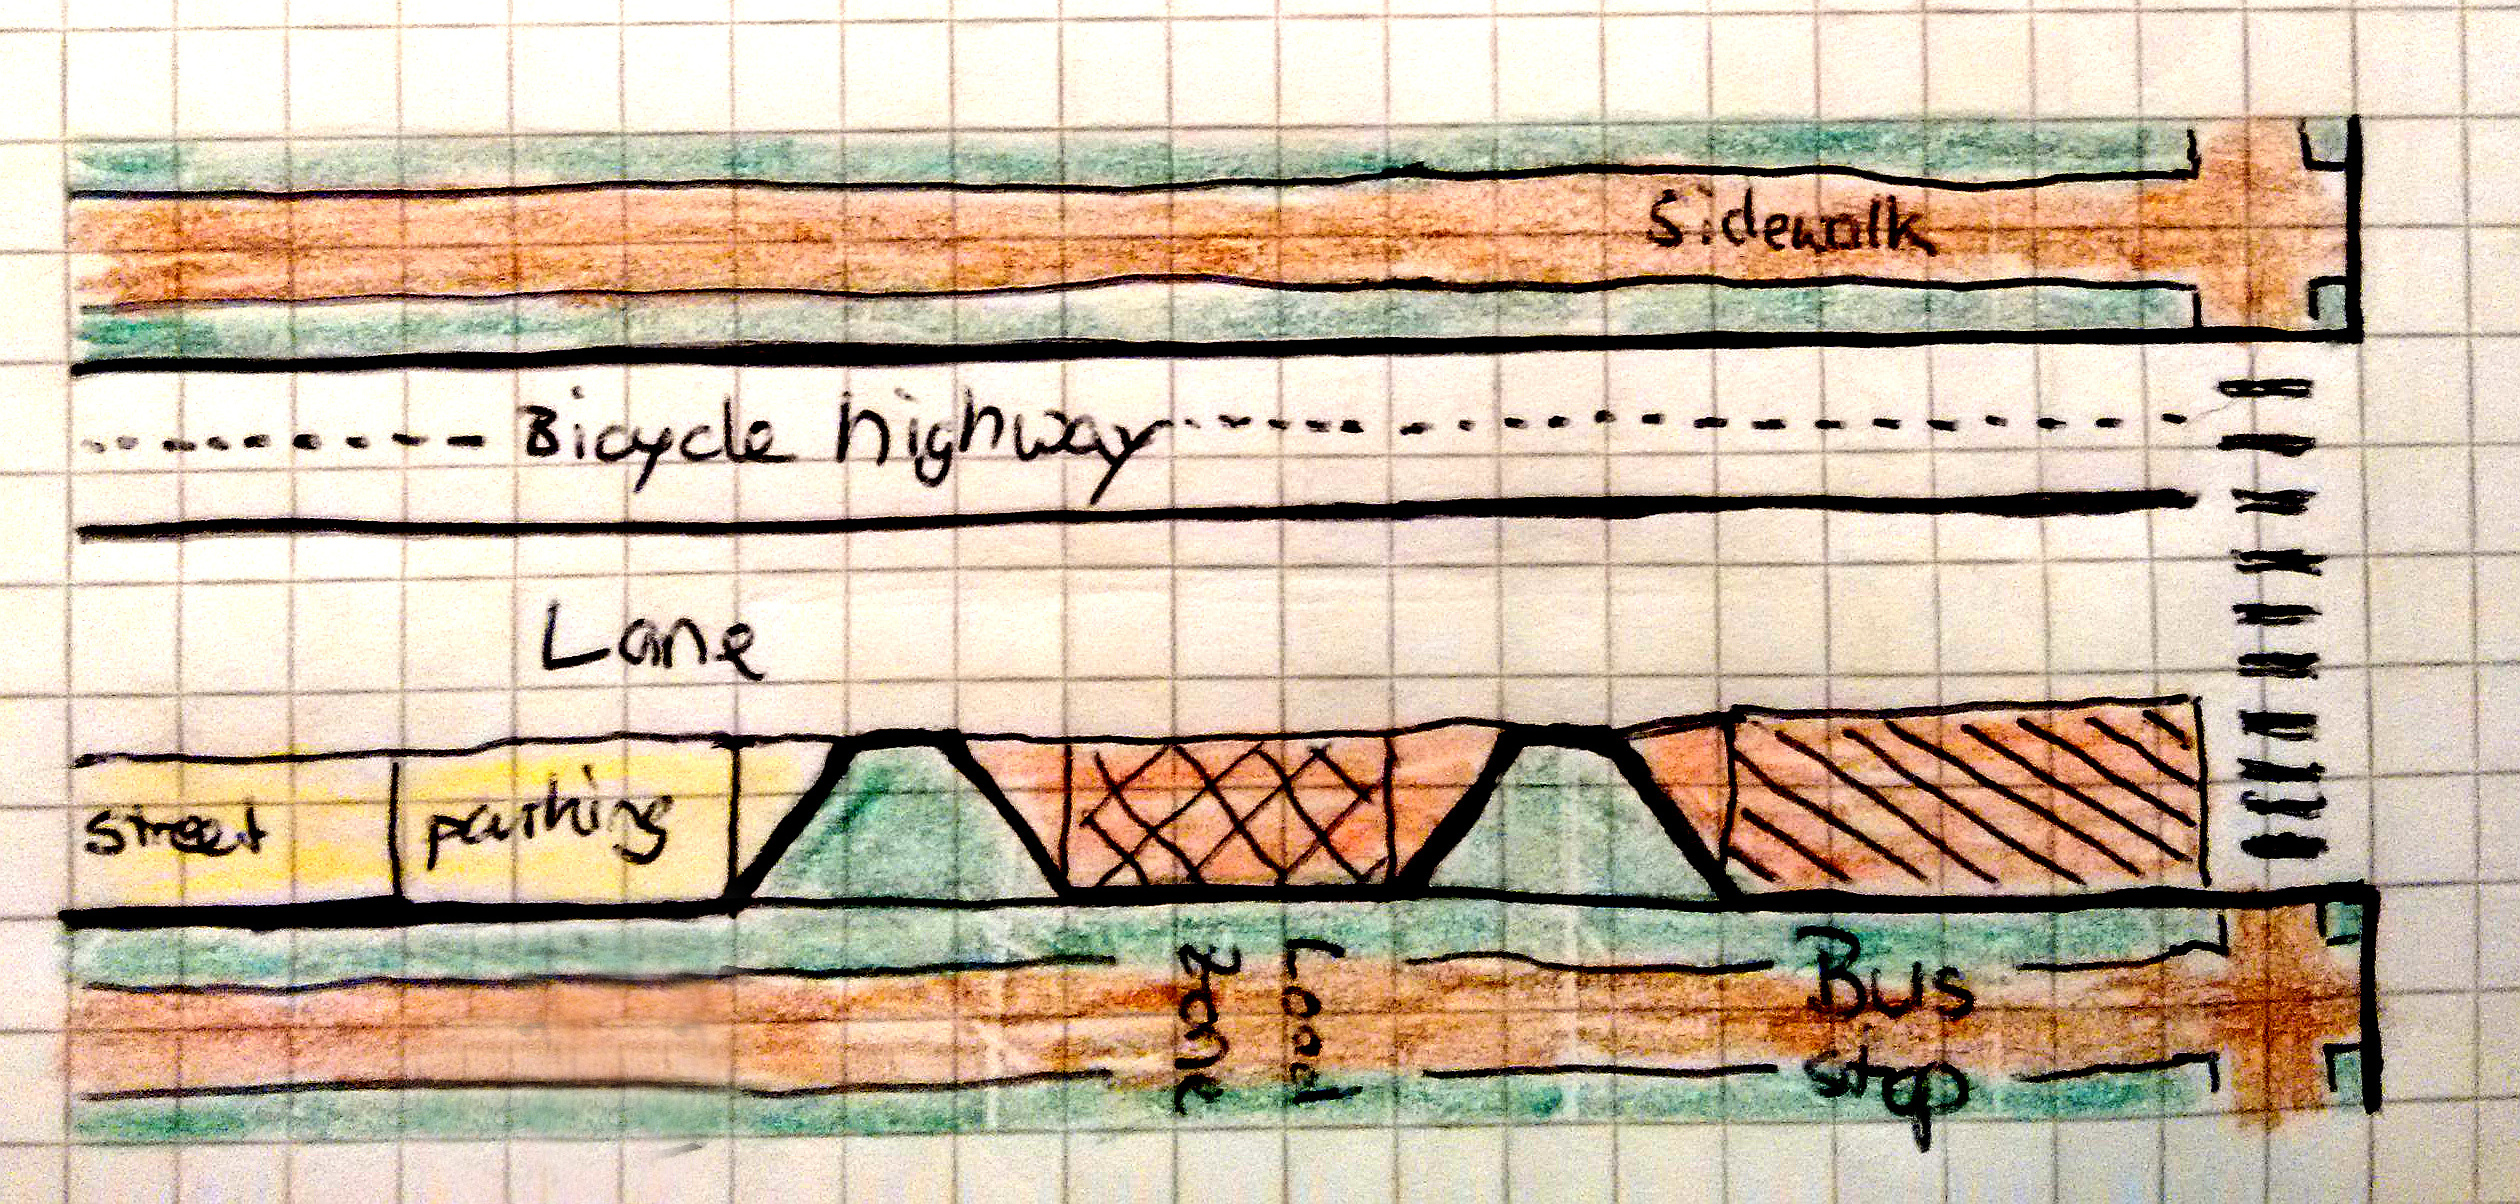 Sidewalk
Bicycle highway
Lane
street
parking
Load
zone
Bus
stop